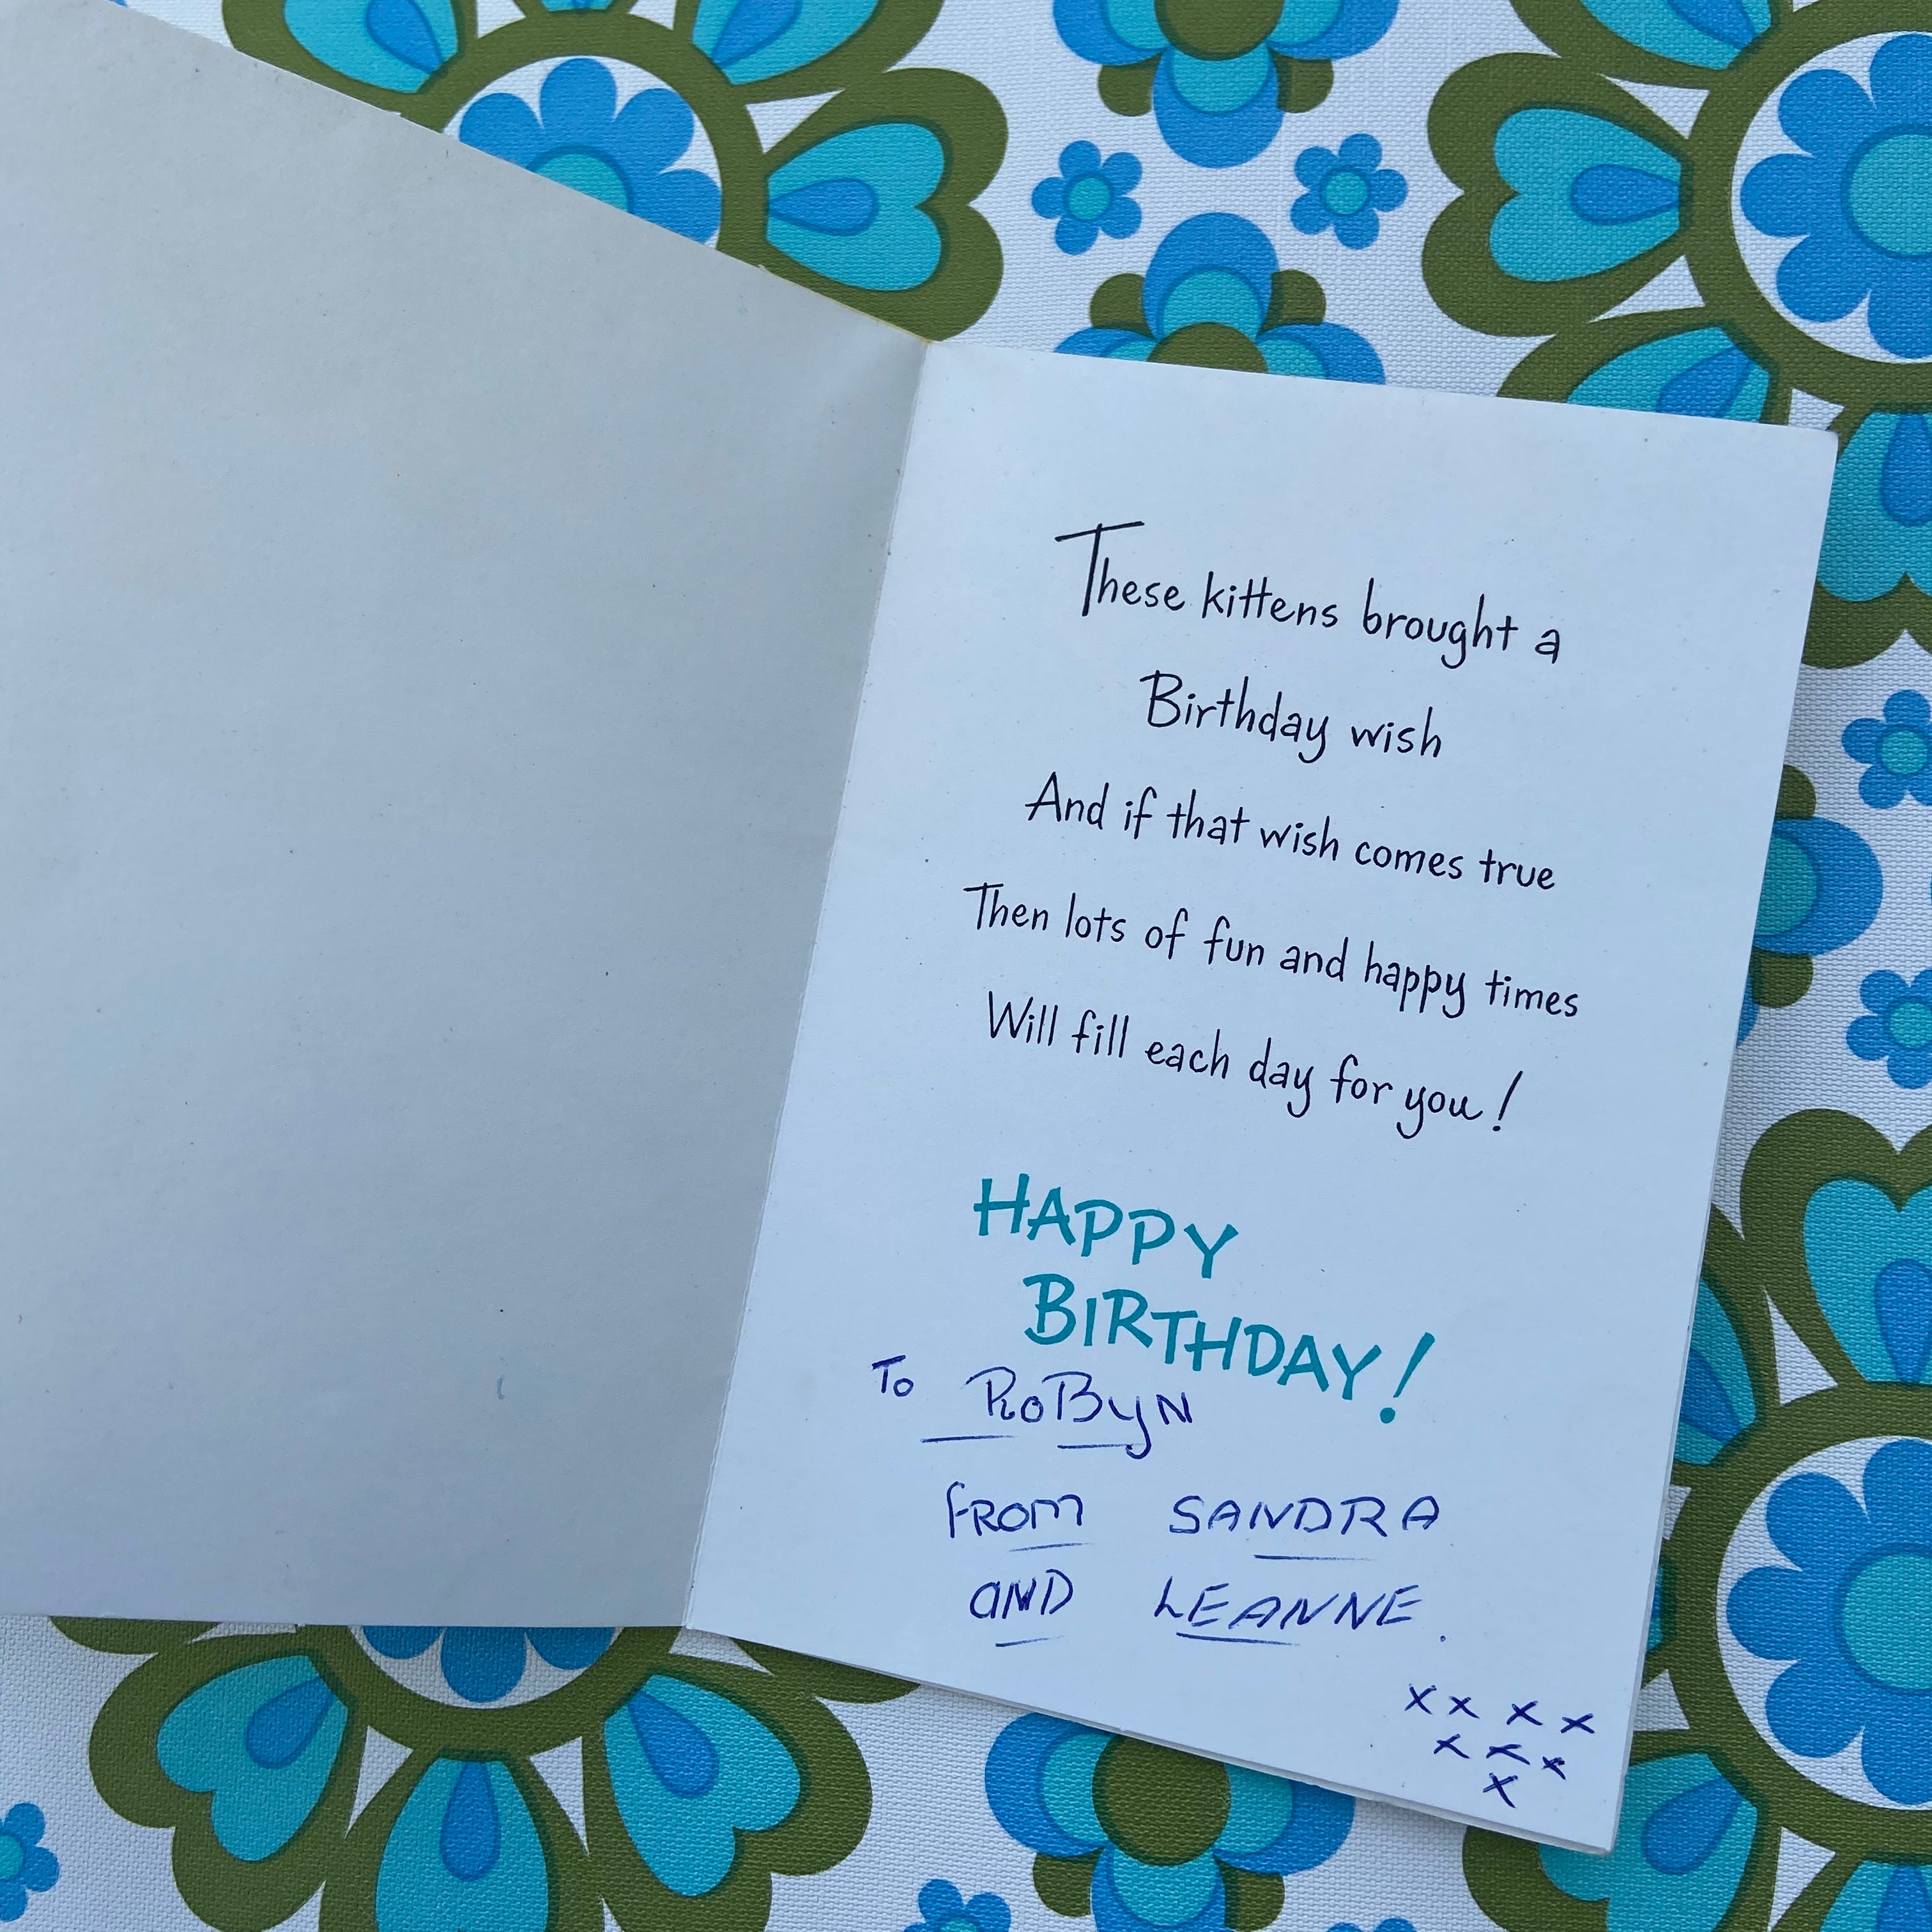 These kittens brought a
Birthday wish
And if that wish comes true
Then lots of fun and happy times
Will fill each day for you!
HAPPY
BIRTHDAY!
To RoByN
FROM SANDRA
AND LEANNE.
xx xx
xxx
x